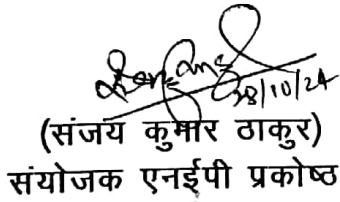 28/10/24
(संजय कुमार ठाकुर)
संयोजक एनईपी प्रकोष्ठ